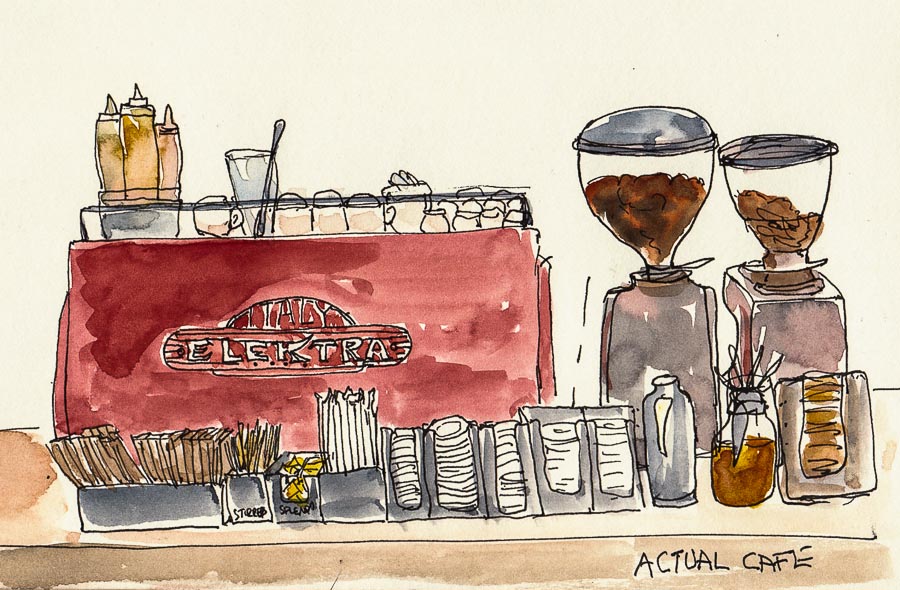 ITALY
ELEKTRA
STIRRER
SPLENDA
ACTUAL CAFÉ